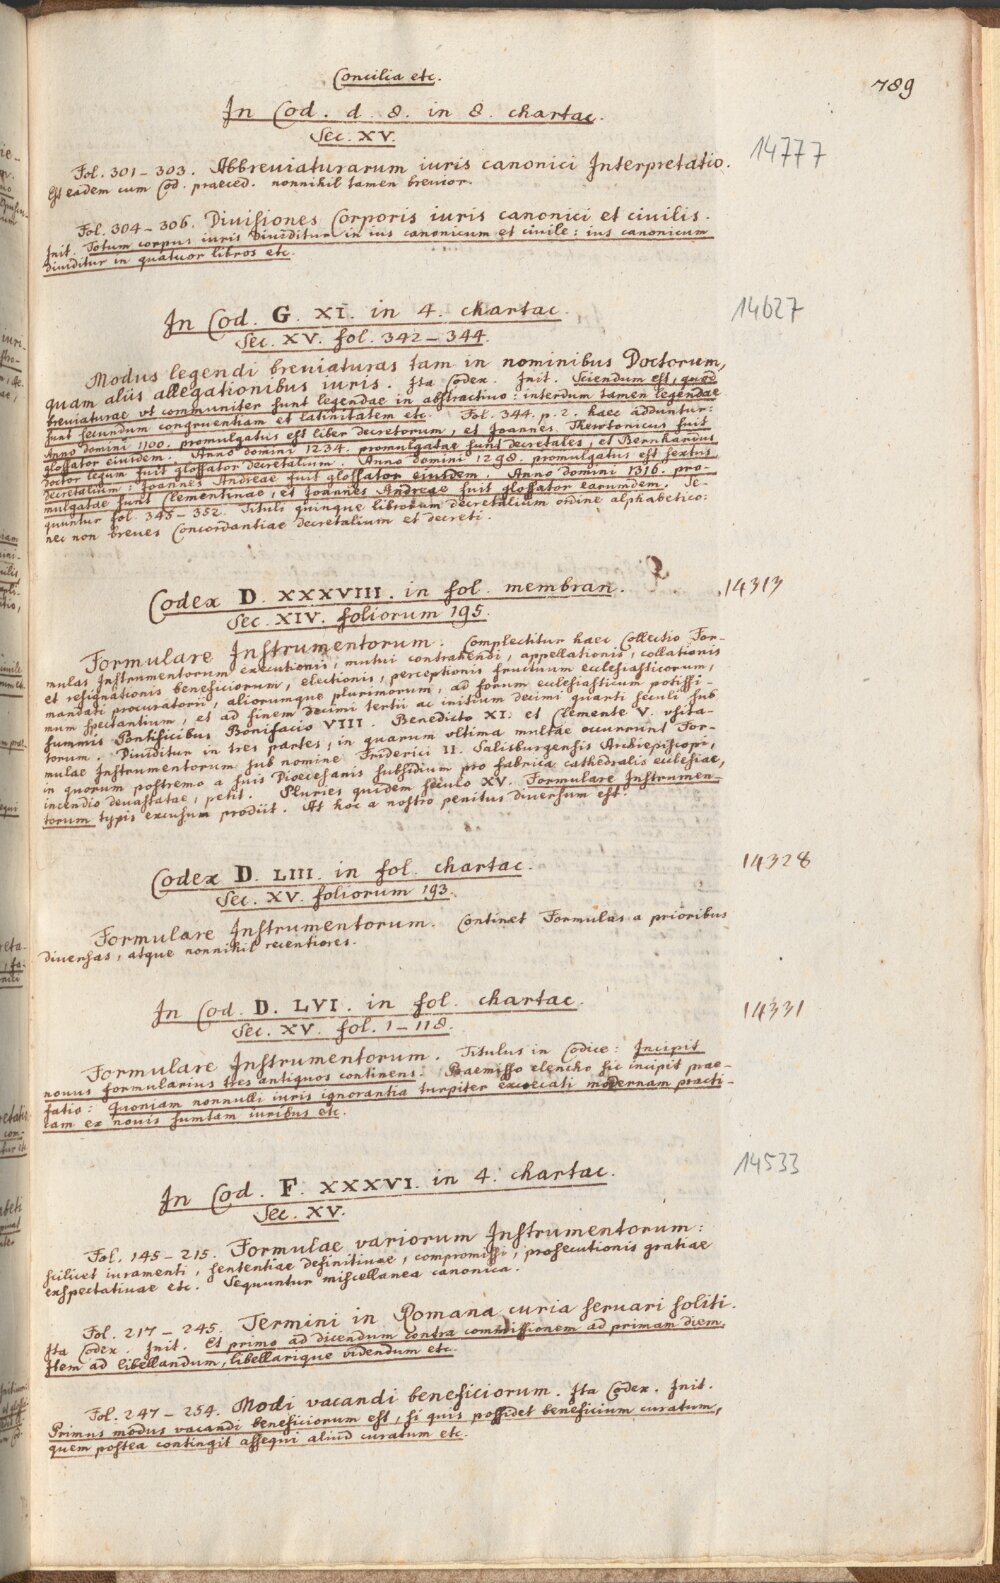 Concilia etc.
789
In Cod. d. 8. in 8. chartac.
Sec. XV.
14777
Fol. 301–303. Abbreviaturarum iuris canonici Interpretatio.
Est eadem cum Cod. praeced. nonnihil tamen brevior.
Fol. 304–306. Divisiones Corporis iuris canonici et civilis.
Init. Totum corpus iuris dividitur in ius canonicum et civile: ius canonicum
dividitur in quatuor libros etc.
In Cod. G. XI. in 4. chartac.
14627
Sec. XV. fol. 342–344.
Modus legendi breviaturas tam in nominibus Doctorum,
quam aliis allegationibus iuris. Ita Codex. Init. Sciendum est, quod
breviaturae vt communiter sunt legendae in abstractivo: interdum tamen legendae
sunt secundum congruentiam et latinitatem etc. Fol. 344. p. 2. haec adduntur:
Anno domini 1100. promulgatus est liber decretorum, et Joannes Thewtonicus fuit
glossator eiusdem. Anno domini 1234. promulgatae sunt decretales, et Bernhardus
doctor legum fuit glossator decretalium. Anno domini 1298. promulgatus est sextus
decretalium: Joannes Andreae fuit glossator eiusdem. Anno domini 1316. pro-
mulgatae sunt Clementinae, et Joannes Andreae fuit glossator earumdem. Se-
quuntur fol. 345–352. Tituli quinque librorum decretalium ordine alphabetico:
nec non breves Concordantiae decretalium et decreti.
Codex D. XXXVIII. in fol. membran.
14313
Sec. XIV. foliorum 195.
Formulare Instrumentorum. Complectitur haec Collectio For-
mulas Instrumentorum executionis, mutui contrahendi, appellationis, collationis
et resignationis beneficiorum, electionis, perceptionis fructuum ecclesiasticorum,
mandati procuratorii, aliorumque plurimorum, ad forum ecclesiasticum potissi-
mum spectantium, et ad finem decimi tertii ac initium decimi quarti seculi sub
summis Pontificibus Bonifacio VIII. Benedicto XI. et Clemente V. vsita-
torum. Dividitur in tres partes, in quarum vltima multae occurrunt For-
mulae Instrumentorum sub nomine Friderici II. Salisburgensis Archiepiscopi,
in quorum postremo a suis Dioecesanis subsidium pro fabrica cathedralis ecclesiae,
incendio devastatae, petit. Plurses quidem seculo XV. Formulare Instrumen-
torum typis excusum prodiit. At hoc a nostro penitus diversum est.
Codex D. LIII. in fol. chartac.
14328
Sec. XV. foliorum 193.
Formulare Instrumentorum. Continet Formulas a prioribus
diversas, atque nonnihil recentiores.
In Cod. D. LVI. in fol. chartac.
14331
Sec. XV. fol. 1–118.
Formulare Instrumentorum. Titulus in Codice: Incipit
novus formularius tres antiquos continens. Praemisso elencho sic incipit prae-
fatio: Quoniam nonnulli iuris ignorantia turpiter excoecati modernam practi-
cam ex novis sumtam iuribus etc.
In Cod. F. XXXVI. in 4. chartac.
14533
Sec. XV.
Fol. 145–215. Formulae variorum Instrumentorum:
scilicet iuramenti, sententiae definitivae, compromissi, prosecutionis gratiae
exspectativae etc. Sequuntur miscellanea canonica.
Fol. 217–245. Termini in Romana curia servari soliti.
Ita Codex. Init. Et primo ad dicendum contra commissionem ad primam diem.
Item ad libellandum, libellarique videndum etc.
Fol. 247–254. Modi vacandi beneficiorum. Ita Codex. Init.
Primus modus vacandi beneficiorum est, si quis possidet beneficium curatum,
quem postea contingit assequi aliud curatum etc.